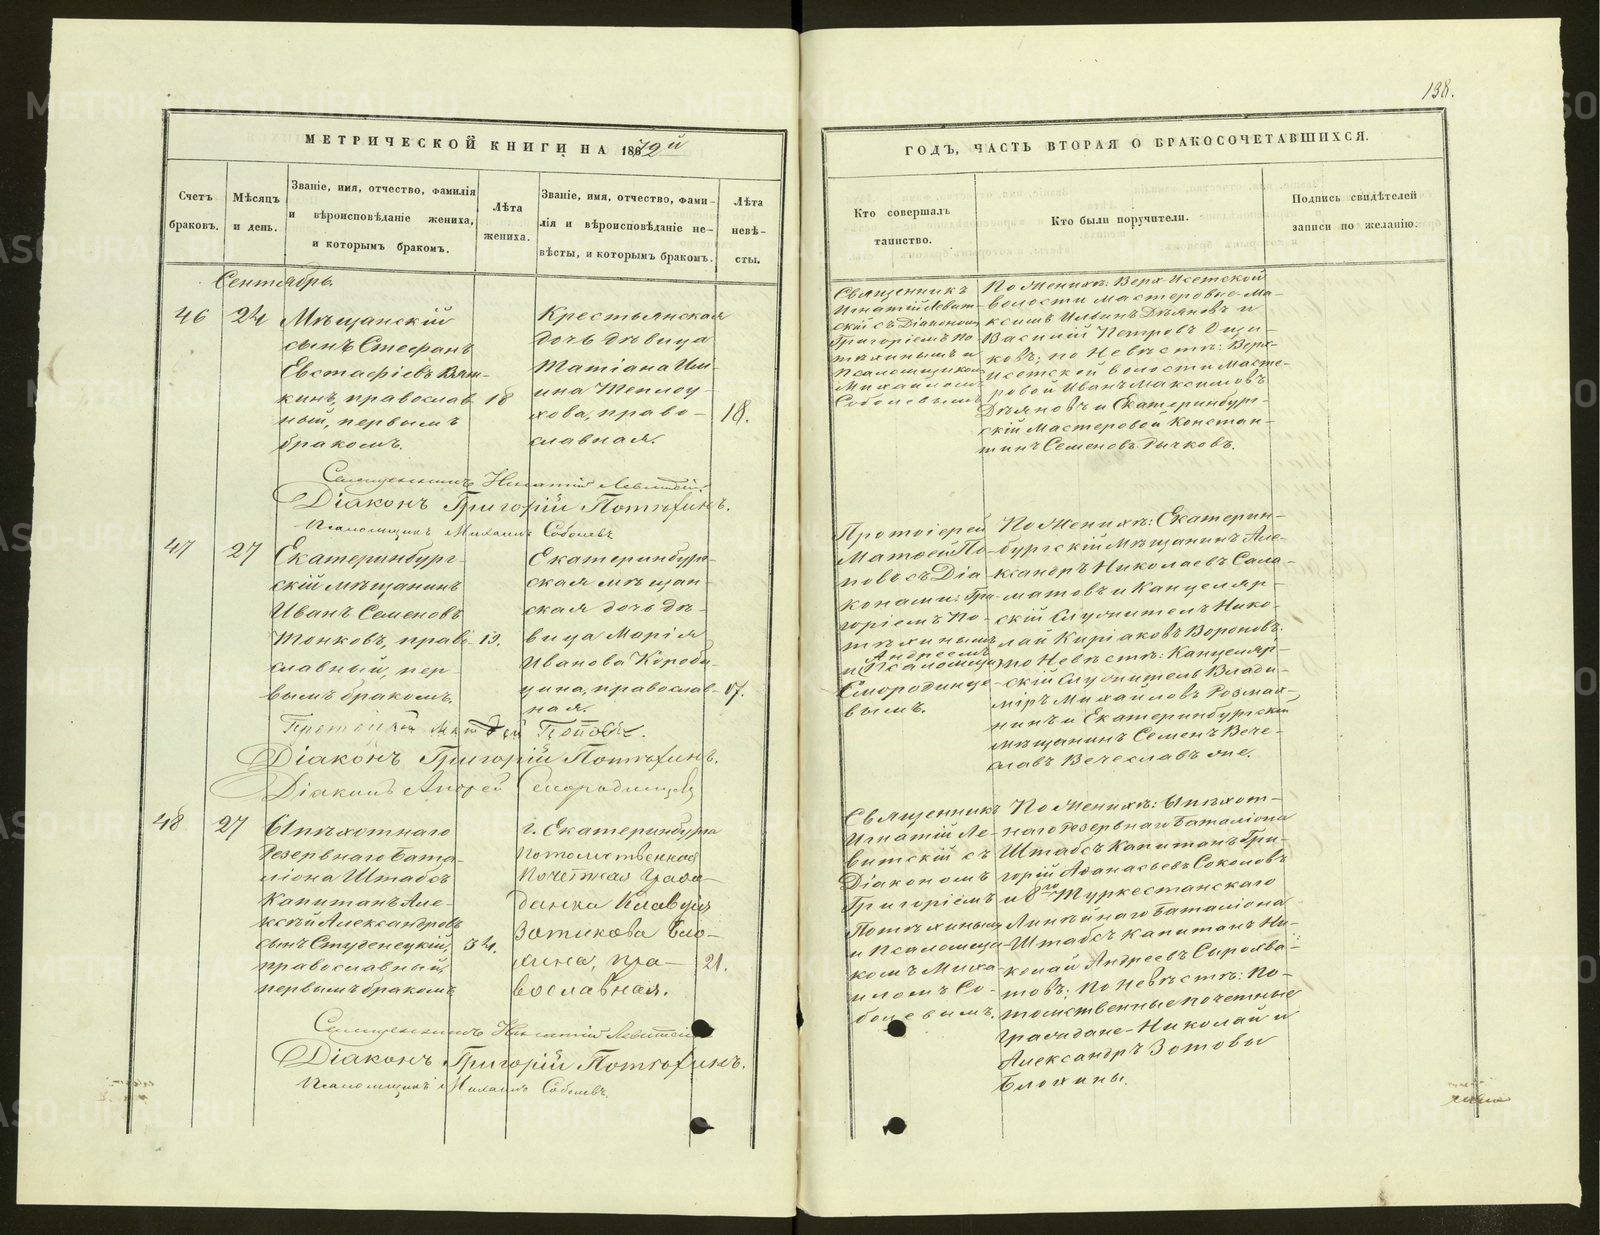 138.
МЕТРИЧЕСКОЙ КНИГИ НА 1872й
ГОДЪ, ЧАСТЬ ВТОРАЯ О БРАКОСОЧЕТАВШИХСЯ.
Счетъ
браковъ.
Мѣсяцъ
и день.
Званіе, имя, отчество, фамилія
и вѣроисповѣданіе жениха,
и которымъ бракомъ.
Лѣта
жениха.
Званіе, имя, отчество, фами-
лія и вѣроисповѣданіе не-
вѣсты, и которымъ бракомъ.
Лѣта
невѣ-
сты.
Кто совершалъ
таинство.
Кто были поручители.
Подпись свидѣтелей
записи по желанію.
Сентябрь.
46
24
Мѣщанскій
сынъ Стефанъ
Евстафіевъ Вят-
кинъ, православ
ный, первымъ
бракомъ.
18
Крестьянская
дочь дѣвица
Татіана Иль
ина Теплоу
хова, право-
славная.
18.
Священникъ
Игнатій Левит-
скій съ Діакономъ
Григоріемъ По
тѣхинымъ и
Псаломщикомъ
Михаиломъ
Соболевымъ
По Женихѣ: Верх-Исетской
волости мастеровые Ма-
ксимъ Ильинъ Деяновъ и
Василій Петровъ Ощи-
ковъ; по Невѣстѣ: Верх-
Исетской волости Масте-
ровой Иванъ Максимовъ
Деяновъ и Екатеринбург-
скій Мастеровой Констан-
тинъ Семеновъ Рычковъ.
Священникъ Игнатій Левитскій.
Діаконъ Григорій Потѣхинъ.
Псаломщикъ Михаилъ Соболевъ
47
27
Екатеринбург-
скій мѣщанинъ
Иванъ Семеновъ
Тонковъ, право
славный, пер-
вымъ бракомъ.
19.
Екатеринбург-
ская мѣщан-
ская дочь дѣ-
вица Марія
Иванова Коробе
ина, православ-
ная.
17.
Протоіерей
Матѳей По-
повъ съ Діа
конами: Гри-
горіемъ По-
тѣхинымъ
Андреемъ
и (Псаломщи)
Смородинце-
вымъ.
По Женихѣ: Екатерин-
бургскій Мѣщанинъ Але-
ксандръ Николаевъ Сала-
матовъ и Канцеляр-
скій Служитель Нико-
лай Киріаковъ Вороновъ;
по Невѣстѣ: Канцеляр-
скій Служитель Влади-
міръ Михайловъ Розмах-
нинъ и Екатеринбургскій
Мѣщанинъ Семенъ Вече-
славъ Вечеславъ же.
Протоіерей Матѳей Поповъ.
Діаконъ Григорій Потѣхинъ.
Діаконъ Андрей Смородинцевъ
48
27
Ыпѣхотнаго
Резервнаго Бата-
ліона Штабсъ
Капитанъ Але-
ксѣй Александровъ
сынъ Студенецкій,
православный,
первымъ бракомъ
34.
г. Екатеринбурга
потомственная
Почетная Граж-
данка Клавдія
Зотикова Бло-
хина, пра-
вославная.
21.
Священникъ
Игнатій Ле-
витскій съ
Діакономъ
Григоріемъ
Потѣхинымъ
и Псаломщи-
комъ Миха-
иломъ Со-
болевымъ.
По Женихѣ: Ыпѣхот-
наго Резервнаго Баталіона
Штабсъ Капитанъ Гри-
горій Аѳанасьевъ Соколовъ
и 8го Туркестанскаго
Линѣйнаго Баталіона
Штабсъ Капитанъ Ни-
колай Андреевъ Сыроява-
товъ; по Невѣстѣ: По-
томственные почетные
Граждане-Николай и
Александръ Зотовы
Блохины.
Священникъ Игнатій Левитскій
Діаконъ Григорій Потѣхинъ.
Псаломщикъ Михаилъ Соболевъ.
METRIKI.GASO-URAL.RU